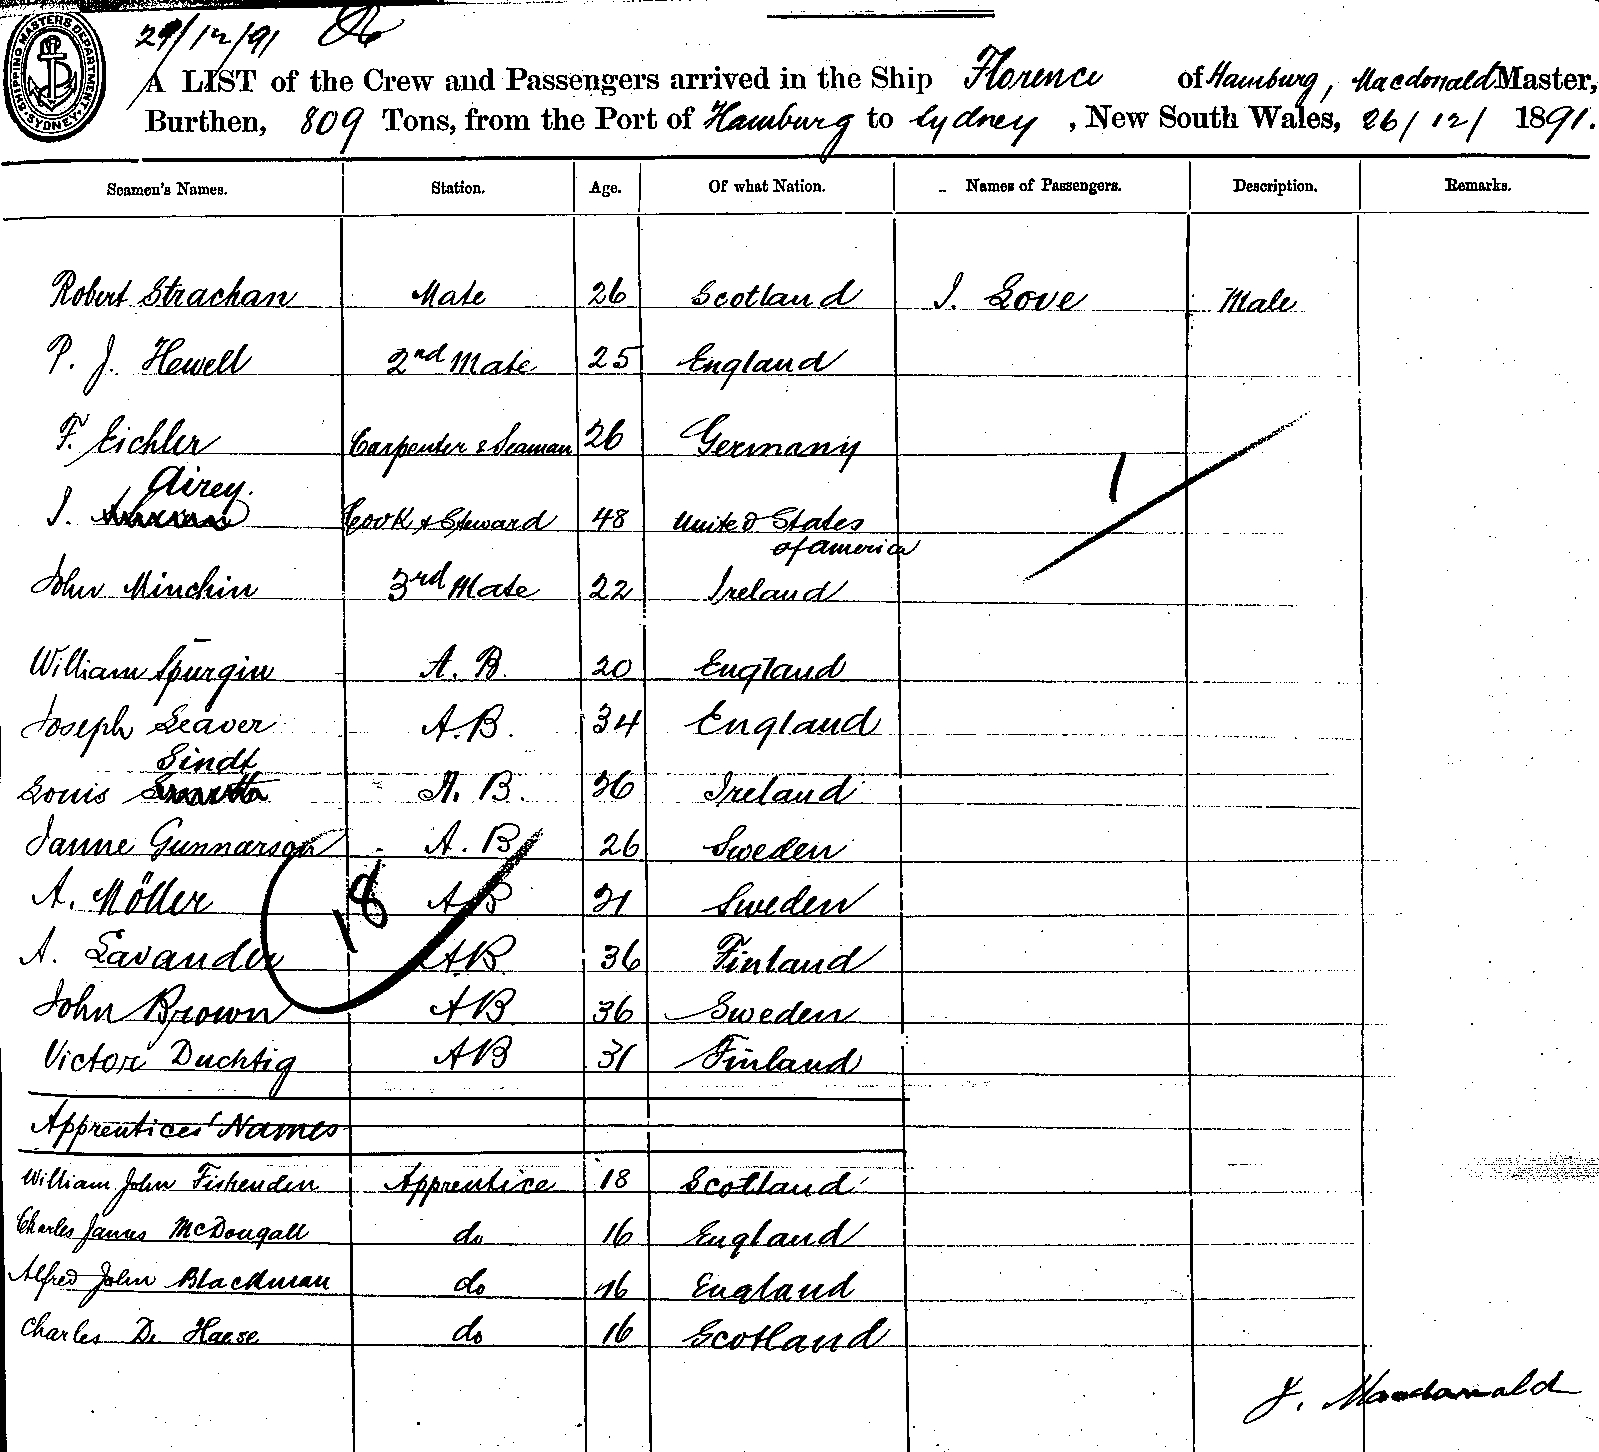 SHIPPING MASTERS DEPARTMENT SYDNEY
29/12/91
A LIST of the Crew and Passengers arrived in the Ship Florence of Hamburg, Macdonald Master,
Burthen, 809 Tons, from the Port of Hamburg to Sydney, New South Wales, 26/12/ 1891.
Seamen's Names. Station. Age. Of what Nation. Names of Passengers. Description. Remarks.
Robert Strachan Mate 26 Scotland J. Love Male
P. J. Hewell 2nd Mate 25 England
F. Eichler Carpenter & Seaman 26 Germany
Airey.
J. Cook & Steward 48 United States
of America
1
John Minchin 3rd Mate 22 Ireland
William Spurgin A. B. 20 England
Joseph Leaver A.B. 34 England
Sindt
Louis A. B. 36 Ireland
Janne Gunnarson A. B 26 Sweden
A. Möller AB 31 Sweden
18
A. Lavander AB 36 Finland
John Brown AB 36 Sweden
Victor Duchtig AB 31 Finland
Apprentices' Names
William John Fishenden Apprentice 18 Scotland
Charles James McDougall do 16 England
Alfred John Blackman do 16 England
Charles De Haese do 16 Scotland
J. Macdonald